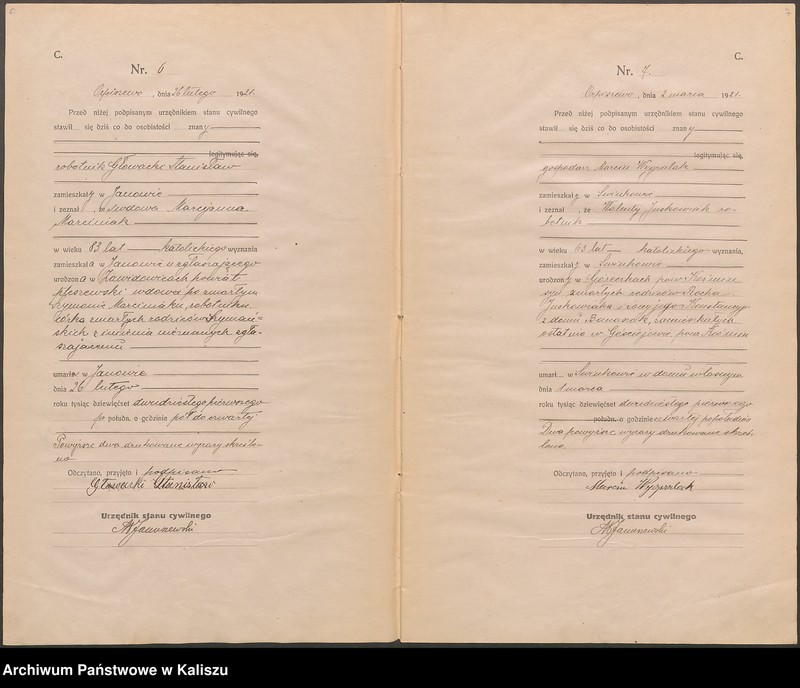 C.
Nr. 6
Orpiszewo, dnia 26 lutego 1921.
Przed niżej podpisanym urzędnikiem stanu cywilnego
stawił się dziś co do osobistości znany
legitymując się,
robotnik Głowacki Stanisław
zamieszkały w Janowie
i zeznał, że wdowa Marcjanna
Marciniak
w wieku 83 lat katolickiego wyznania
zamieszkała w Janowie u zgłaszającego
urodzona w Zawidowicach powiat
pleszewski wdowa po zmarłym
Szymonie Marciniaku, robotniku,
córka zmarłych rodziców Szymań-
skich z imienia nieznanych zgła-
szającemu
umarła w Janowie
dnia 26 lutego
roku tysiąc dziewięćset dwudziestego pierwszego
po połudn. o godzinie pół do czwartej
Powyższe dwa drukowane wyrazy skreślo-
no
Odczytano, przyjęto i podpisano
Głowacki Stanisław
Urzędnik stanu cywilnego
C.
Nr. 7.
Orpiszewo, dnia 2 marca 1921.
Przed niżej podpisanym urzędnikiem stanu cywilnego
stawił się dziś co do osobistości znany
legitymując się,
gospodarz Marcin
zamieszkały w Świnkowie
i zeznał, że Walenty Juskowiak ro-
botnik
w wieku 63 lat katolickiego wyznania,
zamieszkały w Świnkowie
urodzony w pow. Koźmin
syn zmarłych rodziców Rocha
Juskowiaka i żony jego Konstancyi
z domu Banaszak, zamieszkałych
ostatnio w pow. Koźmin
umarł w Świnkowie w domu własnym
dnia 1 marca
roku tysiąc dziewięćset dwudziestego pierwszego
połudn. o godzinie czwartej popołudniu
Dwa powyższe wyrazy drukowane skreś-
lono.
Odczytano, przyjęto i podpisano
Marcin
Urzędnik stanu cywilnego
Archiwum Państwowe w Kaliszu